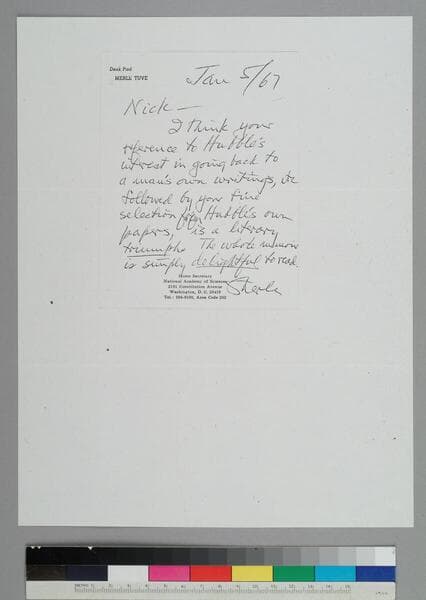 Desk Pad
MERLE TUVE
Jan 5/67
Nick —
I think your
reference to Hubble's
interest in going back to
a man's own writings, etc
followed by your fine
selection from Hubble's own
papers, is a literary
triumph. The whole memoir
is simply delightful to read.
Merle
Home Secretary
National Academy of Sciences
2101 Constitution Avenue
Washington, D. C. 20418